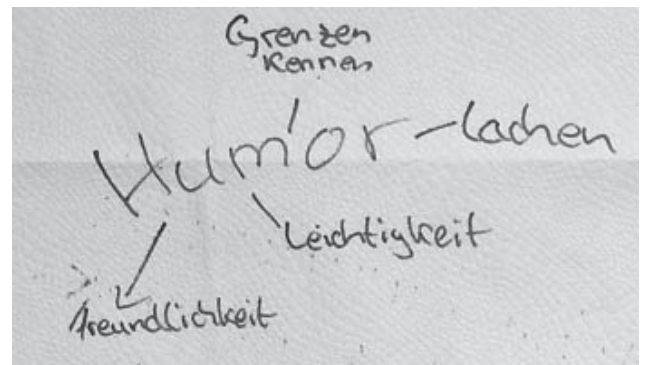 Grenzen
kennen
Humor - Lachen
Leichtigkeit
Freundlichkeit